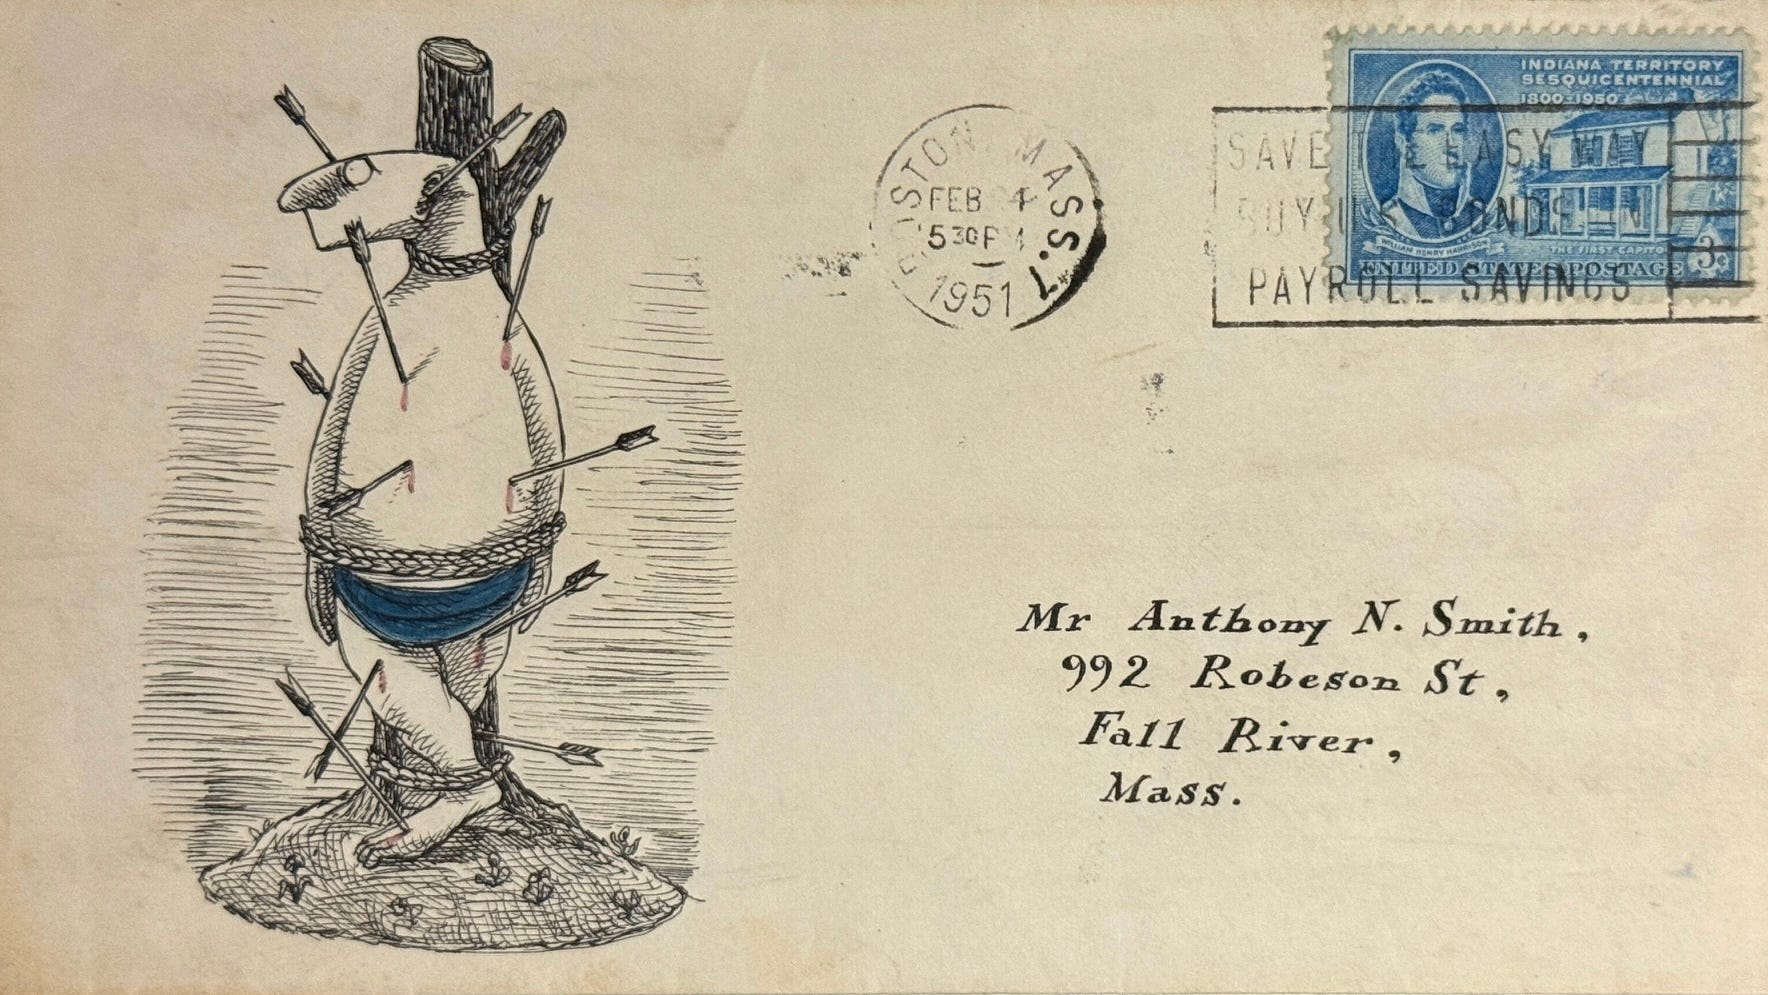 BOSTON, MASS. 7
FEB 24
5 30 PM
1951
SAVE THE EASY WAY
BUY U.S. BONDS IN
PAYROLL SAVINGS
INDIANA TERRITORY
SESQUICENTENNIAL
1800-1950
WILLIAM HENRY HARRISON
THE FIRST CAPITOL
UNITED STATES POSTAGE 3¢
Mr Anthony N. Smith,
992 Robeson St,
Fall River,
Mass.